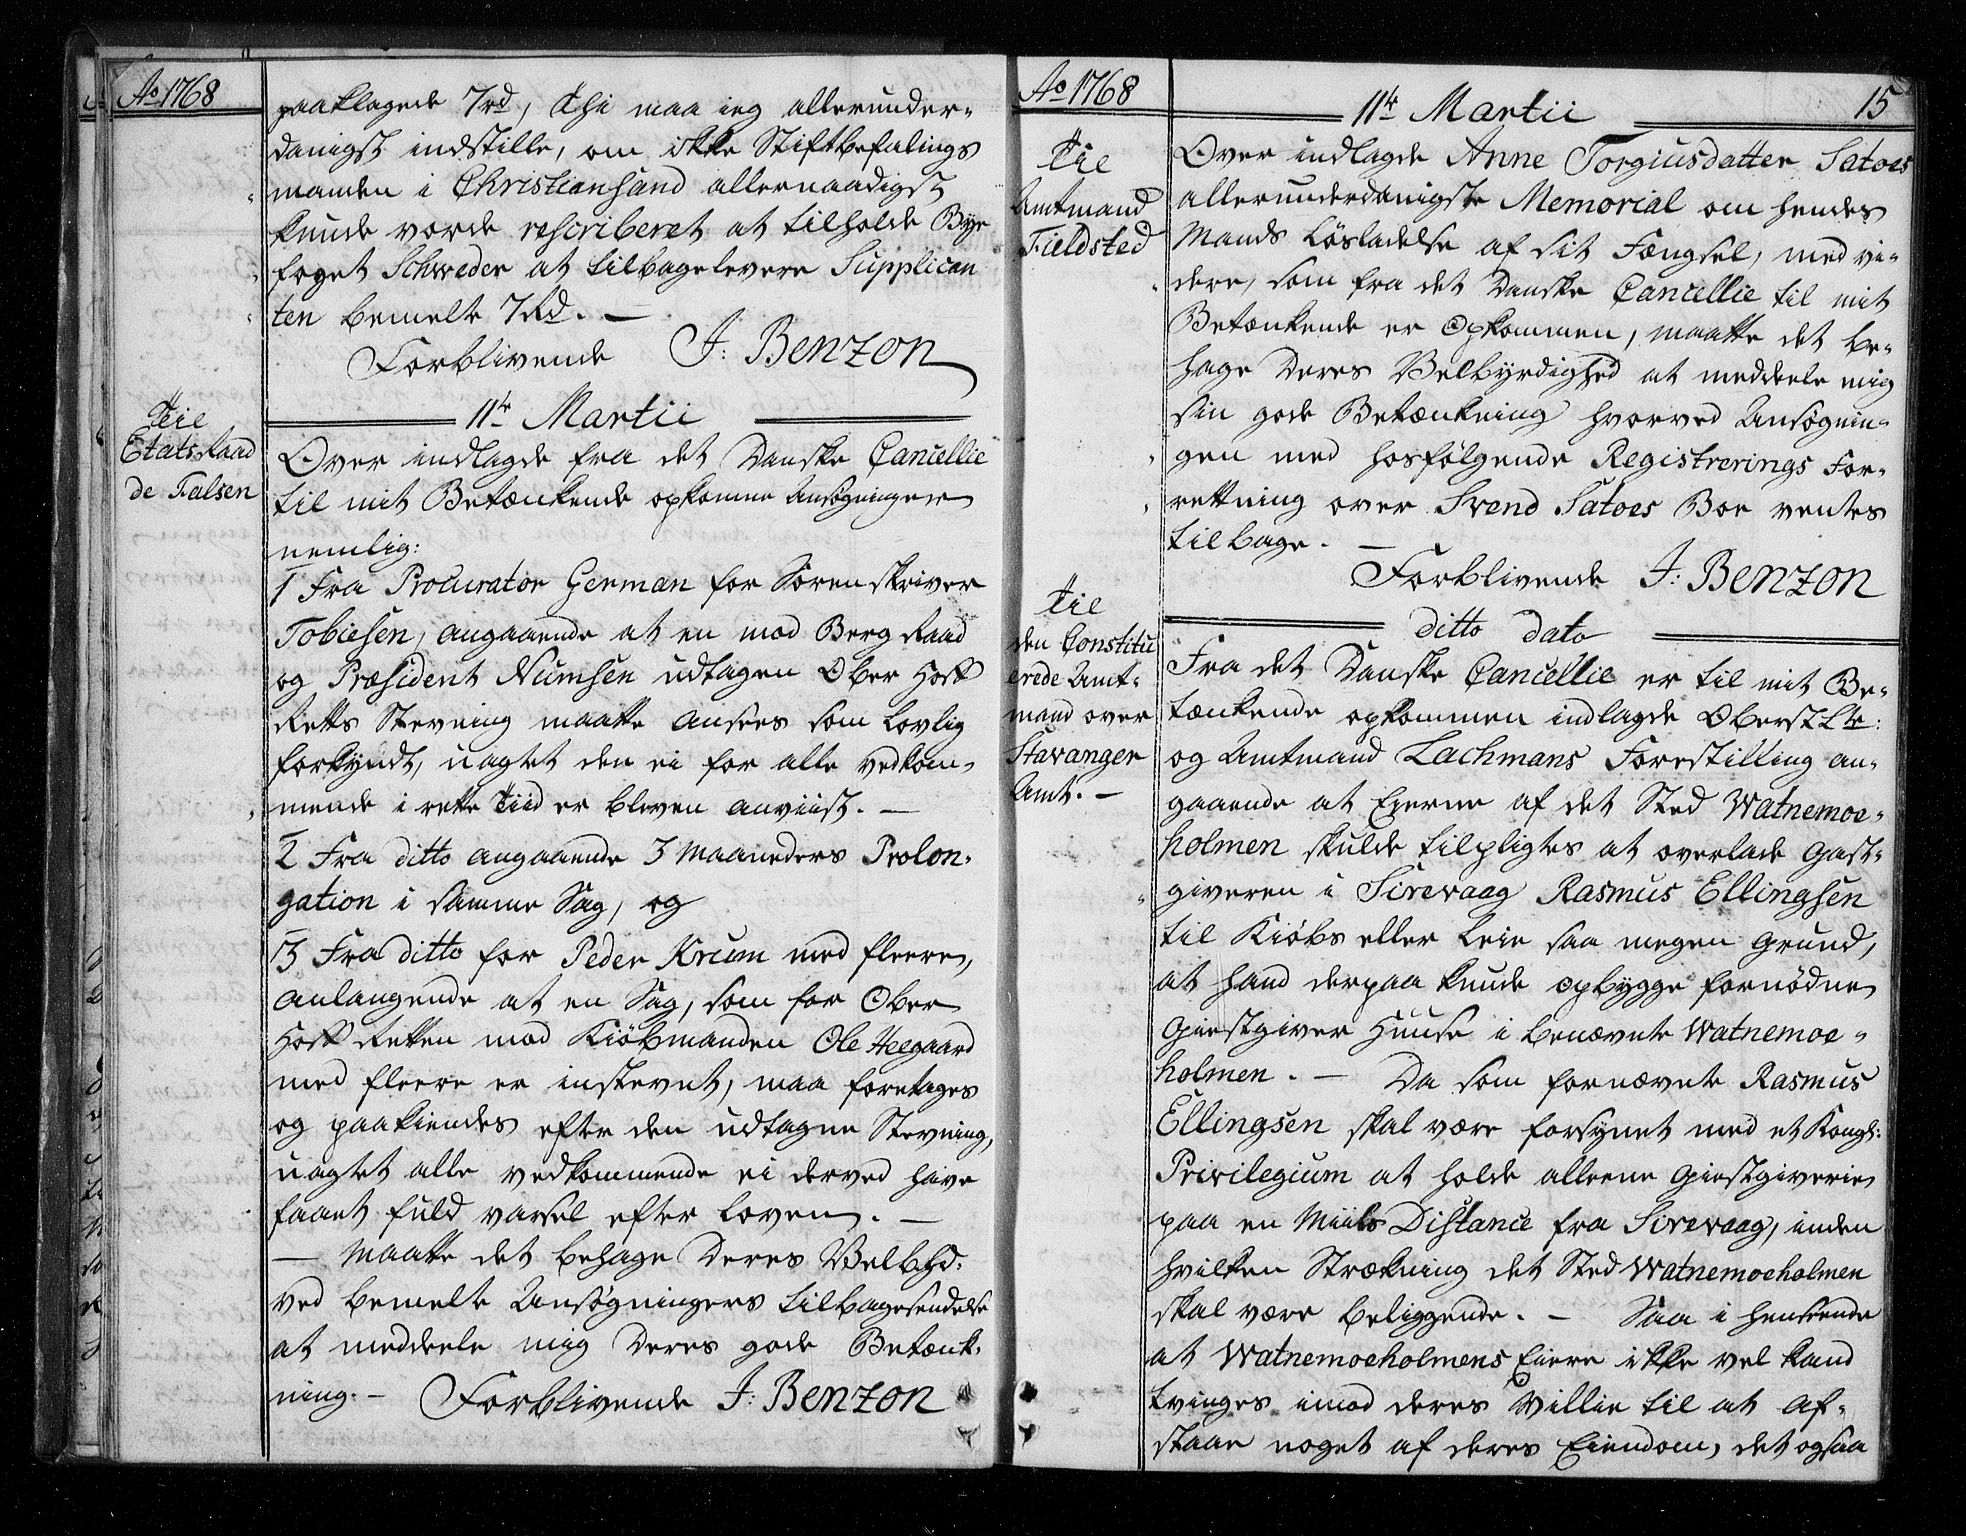 Ao 1768
paaklagede 7rd, thi maa ieg allerunder-
danigst indstille, om ikke Stiftbefalings
manden i Christiansand allernaadigst
kunde vorde rescriberet at tilholde Bye
foget Schweder at tilbagelevere Supplican
ten bemelte 7Rd. —
Forblivende J: Benzon
11te Martii
Til
Etats Raad
de Falsen
Over indlagde fra det Danske Cancellie
til mit Betænkende opkomne Ansøgninger
nemlig:
1 Fra Procurator German for Sorenskriver
Tobiesen, angaaende at en mod Berg Raad
og Præsident Numsen udtagen Ober Hoff
Retts Stevning maatte ansees som lovlig
forkyndt, uagtet den ei for alle vedkom-
mende i rette Tiid er bleven anviist. —
2 Fra ditto angaaende 3 Maaneders Prolon-
gation i samme Sag, og
3 Fra ditto for Peder Krum med fleere,
anlangende at en Sag, som for Ober
Hoff Retten mod Kiøbmanden Ole Heegaard
med fleere er instevnt, maa foretages
og paakiendes efter den udtagne Stevning,
uagtet alle vedkommende ei derved have
faaet fuld varsel efter Loven. —
— Maatte det behage Deres Velbhd:
ved bemelte Ansøgningers tilbagesendelse
at meddeele mig Deres gode Betænk-
ning. — Forblivende J: Benzon
Ao 1768
11te Martii
15
Til
Amtmand
Fieldsted
Over indlagde Anne Torgiusdatter Satoes
allerunderdanigste Memorial om hendes
Mands Løsladelse af sit Fængsel, med vi-
dere, som fra det Danske Cancellie til mit
Betænkende er opkommen, maatte det be-
hage Deres Velbyrdighed at meddeele mig
sin gode Betænkning hvorved Ansøgnin-
gen med hosfølgende Registrerings For-
rettning over Svend Satoes Boe ventes
tilbage. —
Forblivende J: Benzon
ditto dato
Til
den Constitu
erede Amt-
mand over
Stavanger
Amt. —
Fra det Danske Cancellie er til mit Be-
tænkende opkommen indlagde Oberst Lte:
og Amtmand Lachmans Forestilling an-
gaaende at Eierne af det Sted Watnemoe-
holmen skulde tilpligtes at overlade Gast-
giveren i Sirevaag Rasmus Ellingsen
til Kiøbs eller Leie saa megen Grund,
at hand derpaa kunde opbygge fornødne
Giestgiver Huuse i benævnte Watnemoe-
holmen. — Da som fornævnte Rasmus
Ellingsen skal være forsynet med et Kongl:
Privilegium at holde alleene Giestgiverie
paa en Miils Distance fra Sirevaag, inden
hvilken Strækning det Sted Watnemoeholmen
skal være beliggende. — Saa i henseende
at Watnemoeholmens Eiere ikke vel kand
tvinges imod deres Villie til at af-
staae noget af deres Eiendom, det ogsaa